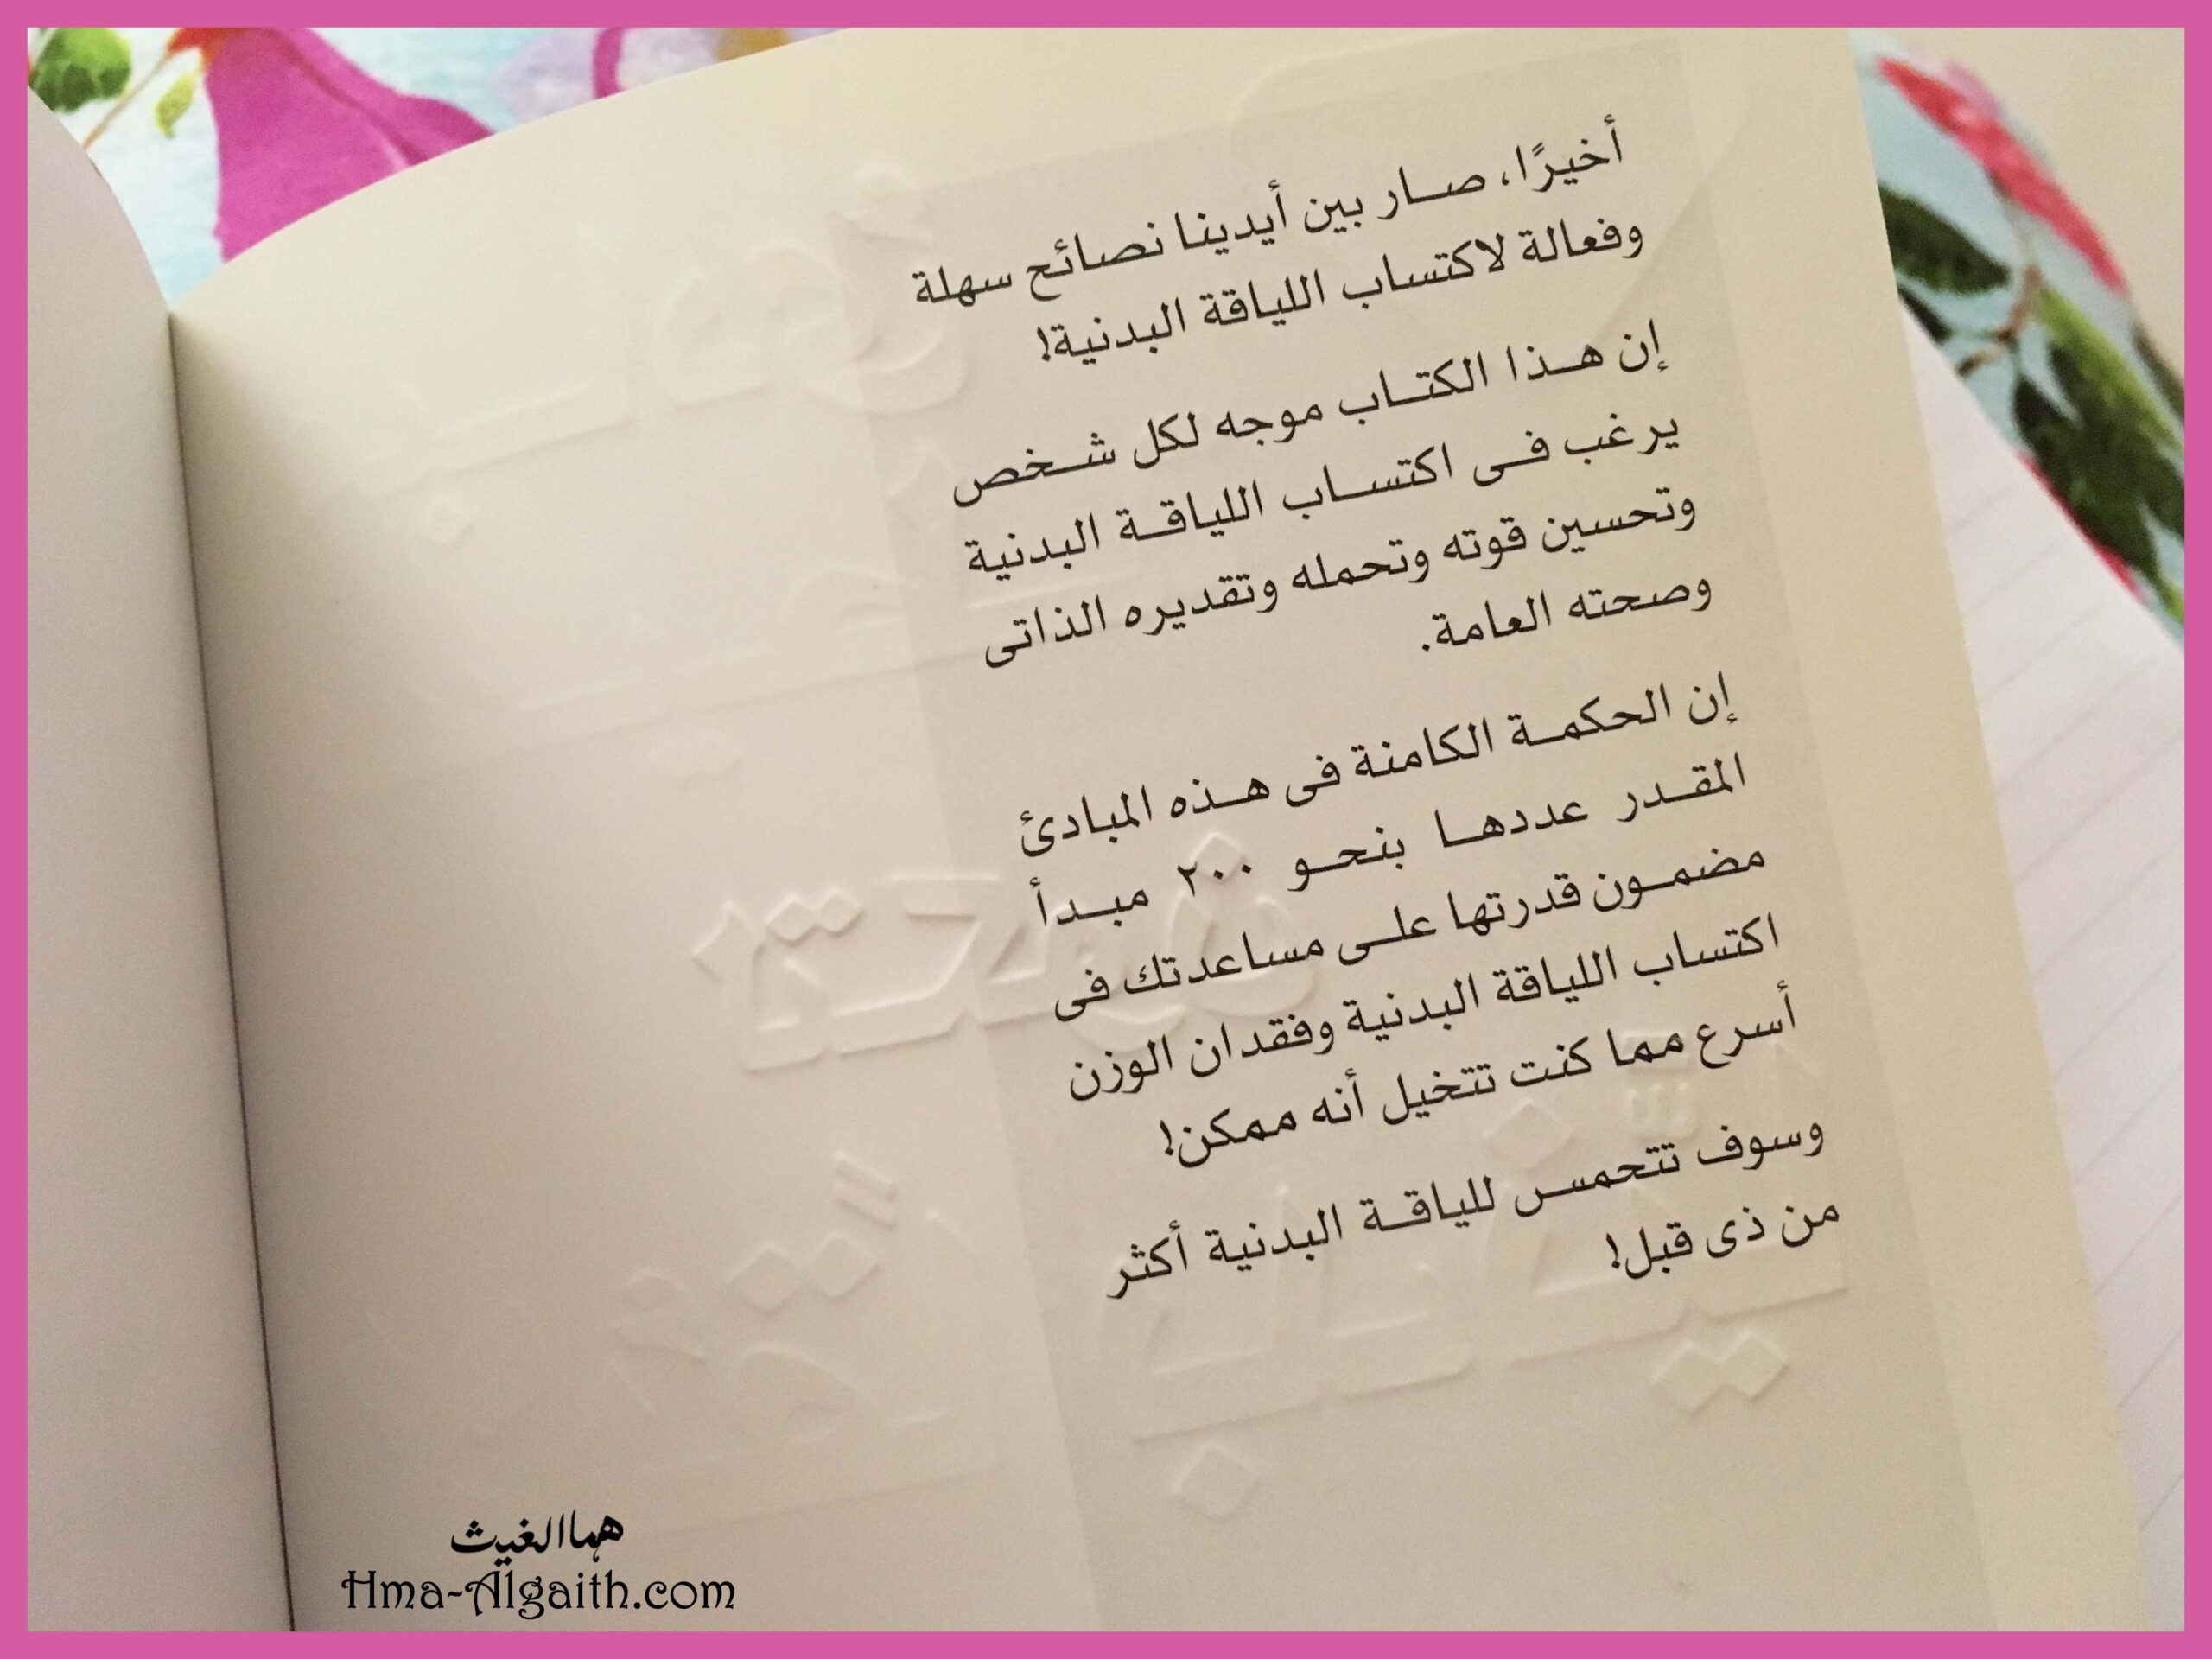 أخيرًا، صار بين أيدينا نصائح سهلة
وفعالة لاكتساب اللياقة البدنية!
إن هذا الكتاب موجه لكل شخص
يرغب فى اكتساب اللياقة البدنية
وتحسين قوته وتحمله وتقديره الذاتى
وصحته العامة.
إن الحكمة الكامنة فى هذه المبادئ
المقدر عددها بنحو ٢٠٠ مبدأ
مضمون قدرتها على مساعدتك فى
اكتساب اللياقة البدنية وفقدان الوزن
أسرع مما كنت تتخيل أنه ممكن!
وسوف تتحمس للياقة البدنية أكثر
من ذى قبل!
هما الغيث
Hma-Algaith.com